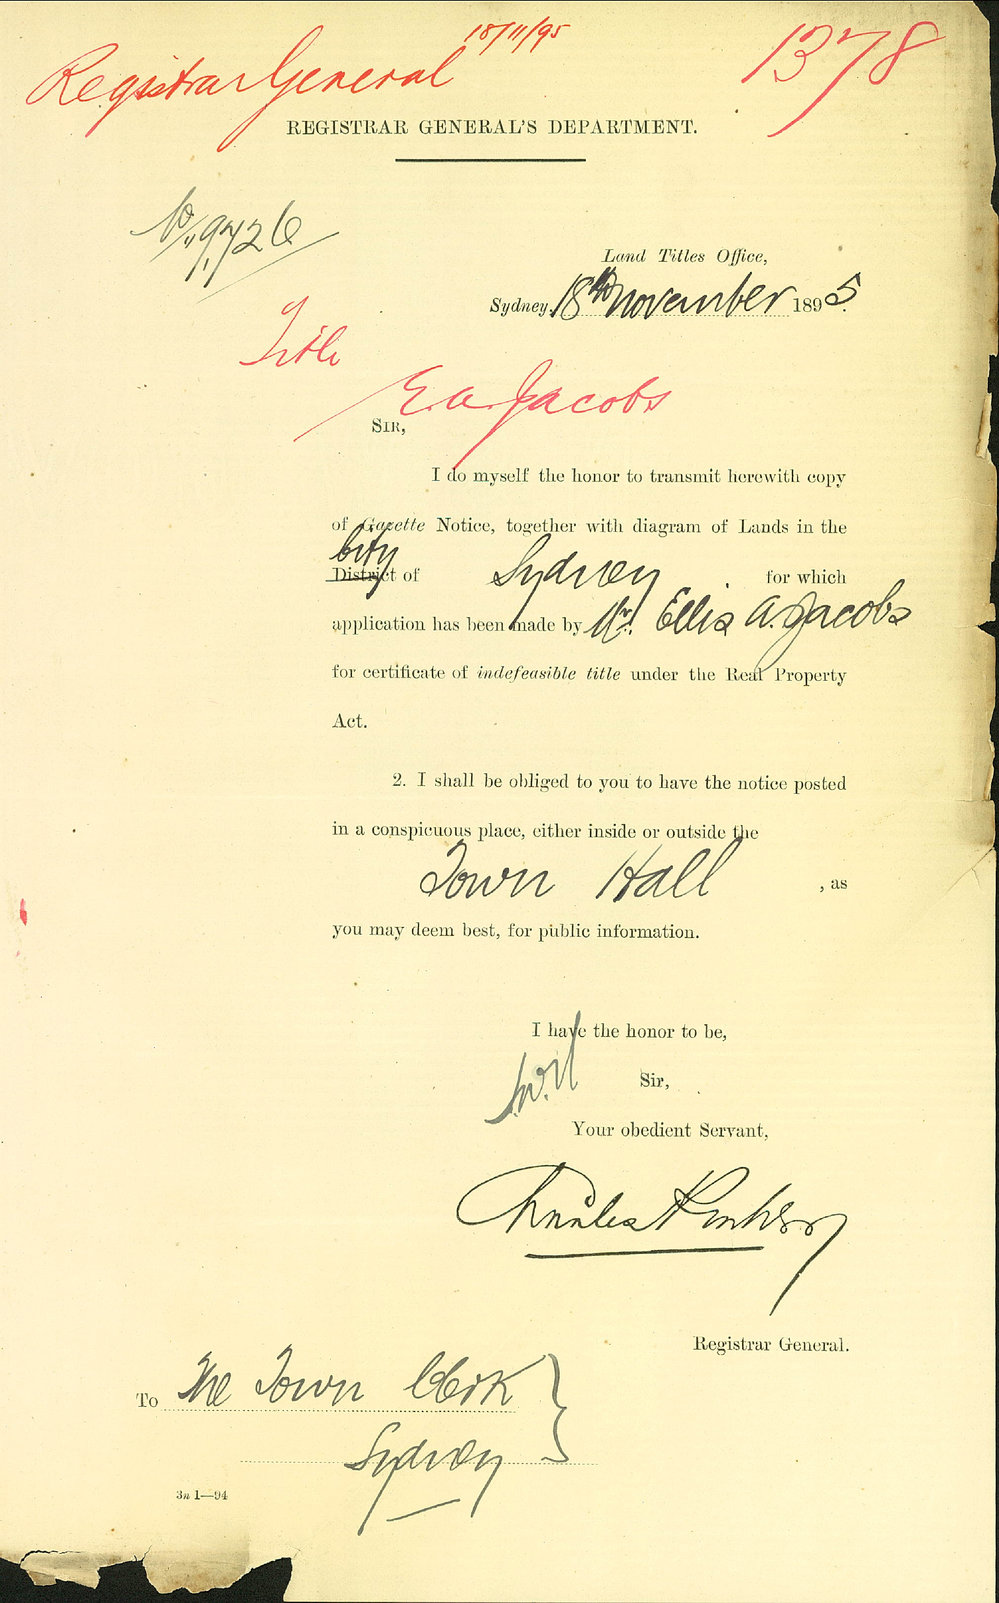 18/11/95
Registrar General
1378
REGISTRAR GENERAL'S DEPARTMENT.
No. 9726
Land Titles Office,
Sydney, 18th November 1895.
Title
E. A. Jacobs
SIR,
I do myself the honor to transmit herewith copy
of Gazette Notice, together with diagram of Lands in the
City
District of Sydney for which
application has been made by Mr. Ellis A. Jacobs
for certificate of indefeasible title under the Real Property
Act.
2. I shall be obliged to you to have the notice posted
in a conspicuous place, either inside or outside the
Town Hall , as
you may deem best, for public information.
I have the honor to be,
Sir,
Your obedient Servant,
Charles
Registrar General.
To The Town Clerk
Sydney
3n 1—94